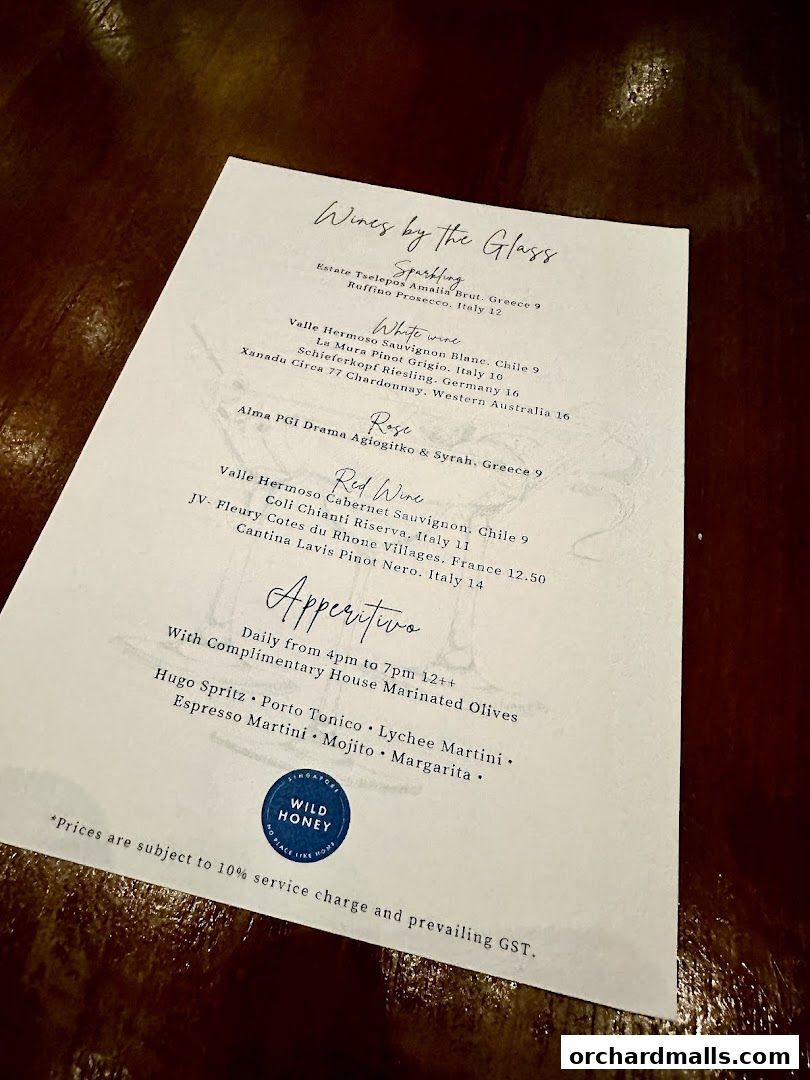 Wines by the Glass
Sparkling
Estate Tselepos Amalia Brut. Greece 9
Ruffino Prosecco. Italy 12
White wine
Valle Hermoso Sauvignon Blanc. Chile 9
La Mura Pinot Grigio. Italy 10
Schieferkopf Riesling. Germany 16
Xanadu Circa 77 Chardonnay. Western Australia 16
Rose
Alma PGI Drama Agiogitko & Syrah. Greece 9
Red Wine
Valle Hermoso Cabernet Sauvignon. Chile 9
Coli Chianti Riserva. Italy 11
JV- Fleury Cotes du Rhone Villages. France 12.50
Cantina Lavis Pinot Nero. Italy 14
Apperitivo
Daily from 4pm to 7pm 12++
With Complimentary House Marinated Olives
Hugo Spritz • Porto Tonico • Lychee Martini •
Espresso Martini • Mojito • Margarita •
SINGAPORE
WILD
HONEY
NO PLACE LIKE HOME
*Prices are subject to 10% service charge and prevailing GST.
orchardmalls.com